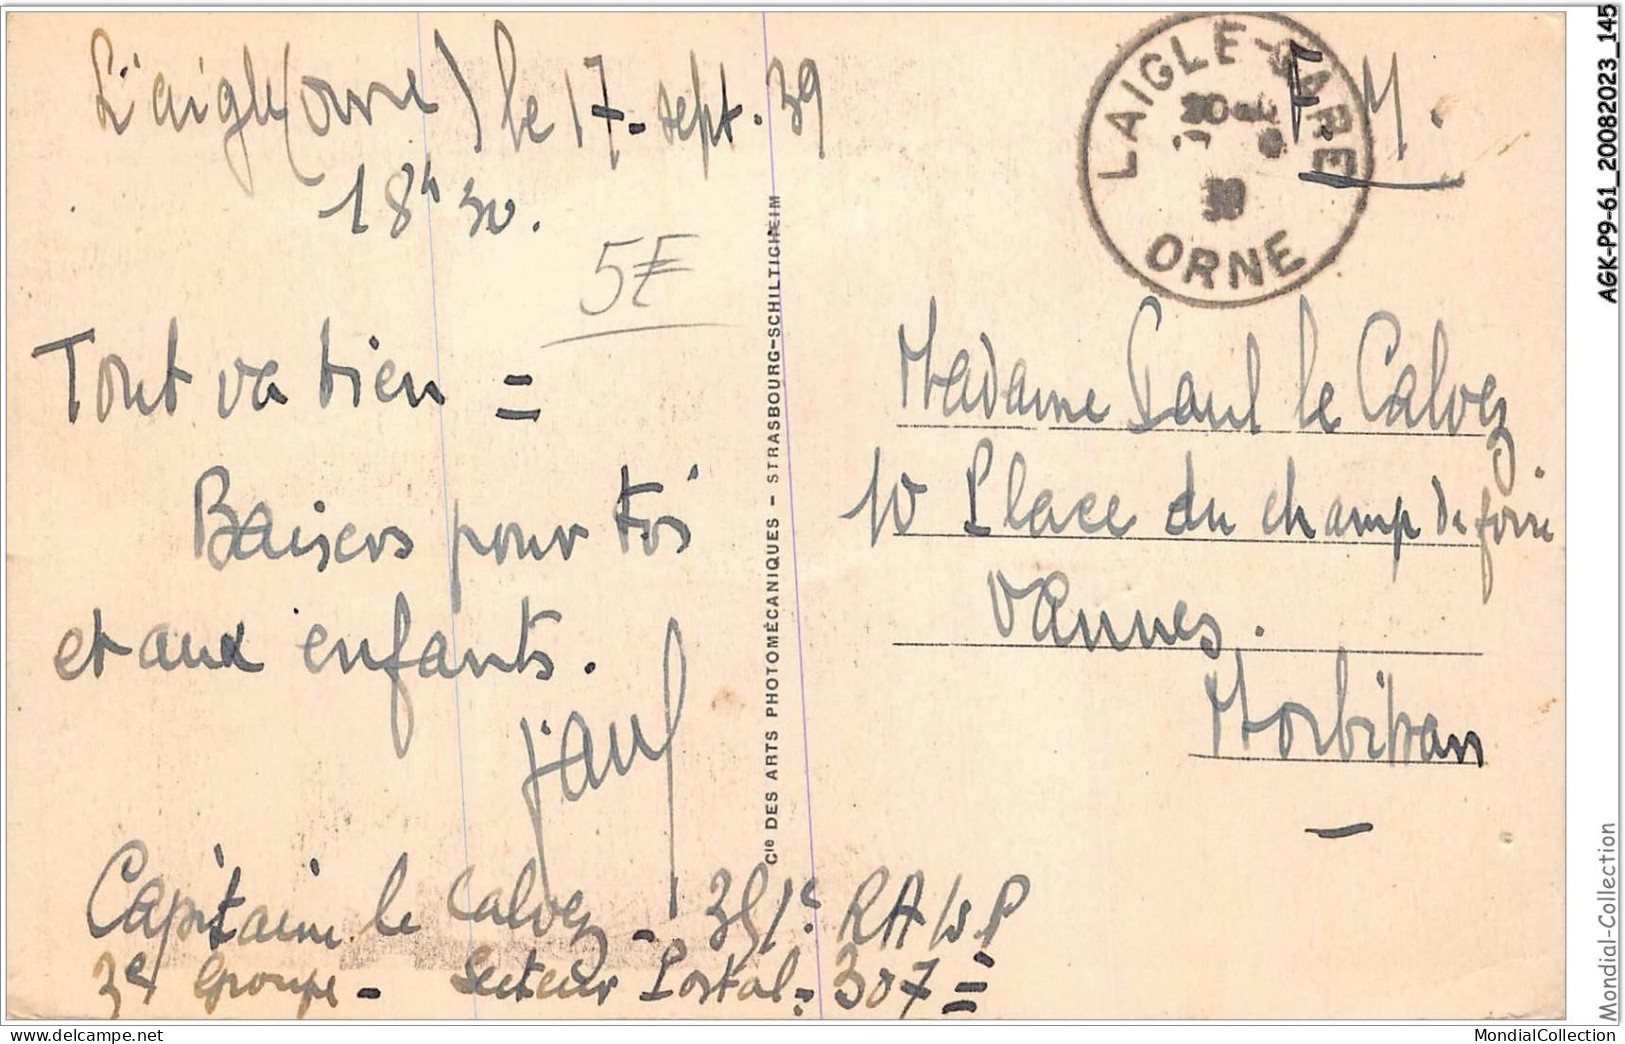 L'aigle (Orne) le 17 - sept. 39
18h 30.
5€
Tout va bien =
Baisers pour toi
et aux enfants.
Paul
Capitaine le Calvez - 351e RA
3e Groupe - Secteur Postal - 307 =
Cie DES ARTS PHOTOMÉCANIQUES - STRASBOURG-SCHILTIGHEIM
LAIGLE-GARE
ORNE
F.M.
Madame Paul le Calvez
10 Place du champ de foire
Vannes.
Morbihan
AGK-P9-61_20082023_145
Mondial-Collection
MondialCollection